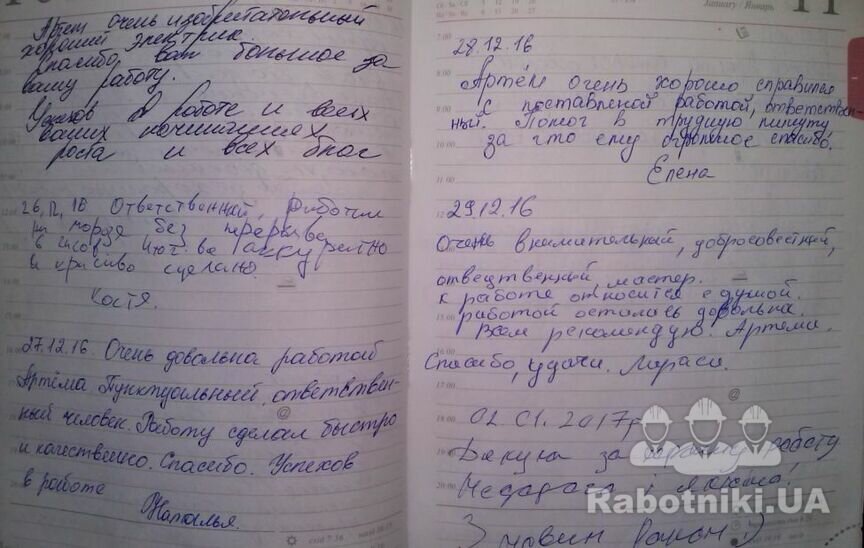 Артем очень изобретательный
хороший электрик.
Спасибо вам большое за
вашу работу.
Успехов в работе и всех
ваших начинаниях
роста и всех благ
26,12,16 Ответственный, работал
на морозе без перерыва
6 часов.
и красиво сделано.
Костя.
27.12.16. Очень довольна работой
Артёма Пунктуальный, ответствен-
ный человек. Работу сделал быстро
и качественно. Спасибо. Успехов
в работе
Наталья.
January / Январь
11
28.12.16
Артём очень хорошо справился
с поставленой работой, ответствен-
ный. Помог в трудную минуту
за что ему огромное спасибо.
Елена
29.12.16
Очень внимательный, добросовестный,
отведственный, мастер.
К работе относится с душой.
работой осталась довольна.
Всем рекомендую. Артёма.
Спасибо, удачи. Лариса.
02.01.2017р
Дякую за роботу
Недорого і якісно!
З повагою Роман
Rabotniki.UA